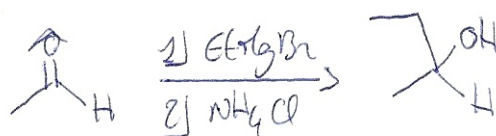 O
H
1) EtMgBr
2) NH4Cl
OH
H